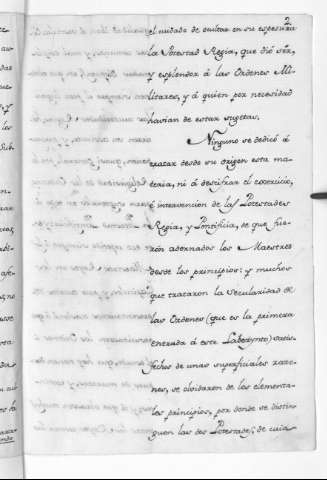 2
el cuidado de evitar en su espesura
la Potestad Regia, que dió sér,
y esplendor á las Ordenes Mi-
litares, y á quien por necesidad
havian de estar sugetas.
Ninguno se dedicó á
tratar desde su origen esta ma-
teria, ni á descifrar el exercicio,
é intervencion de las Potestades
Regia, y Pontificia, de que fue-
rón adornados los Maestres
desde los principios: y muchos
que trataron la Secularidad de
las Ordenes (que es la primera
entrada á este Laberynto) satis-
fechos de unas superficiales razo-
nes, se olvidaron de los elementa-
les principios, por donde se distin-
guen las dos Potestades; de cuia